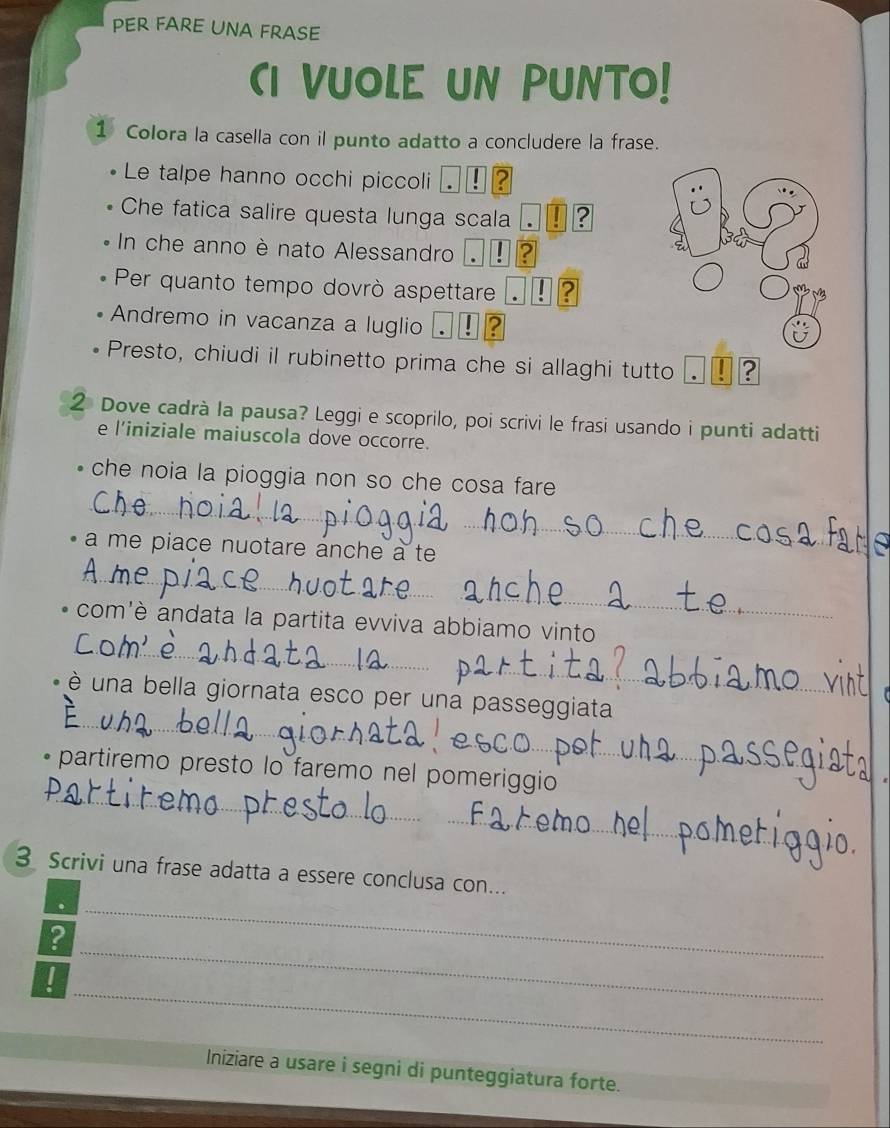 PER FARE UNA FRASE
CI VUOLE UN PUNTO!
1 Colora la casella con il punto adatto a concludere la frase.
• Le talpe hanno occhi piccoli . ! ?
• Che fatica salire questa lunga scala . ! ?
• In che anno è nato Alessandro . ! ?
• Per quanto tempo dovrò aspettare . ! ?
• Andremo in vacanza a luglio . ! ?
• Presto, chiudi il rubinetto prima che si allaghi tutto . ! ?
2 Dove cadrà la pausa? Leggi e scoprilo, poi scrivi le frasi usando i punti adatti
e l'iniziale maiuscola dove occorre.
• che noia la pioggia non so che cosa fare
Che noia! la pioggia non so che cosa fare
• a me piace nuotare anche a te
A me piace nuotare anche a te.
• com'è andata la partita evviva abbiamo vinto
Com'è andata la partita? abbiamo vint
• è una bella giornata esco per una passeggiata
È una bella giornata! esco per una passegiata.
• partiremo presto lo faremo nel pomeriggio
Partiremo presto lo Faremo nel pomeriggio.
3 Scrivi una frase adatta a essere conclusa con...
.
?
!
Iniziare a usare i segni di punteggiatura forte.